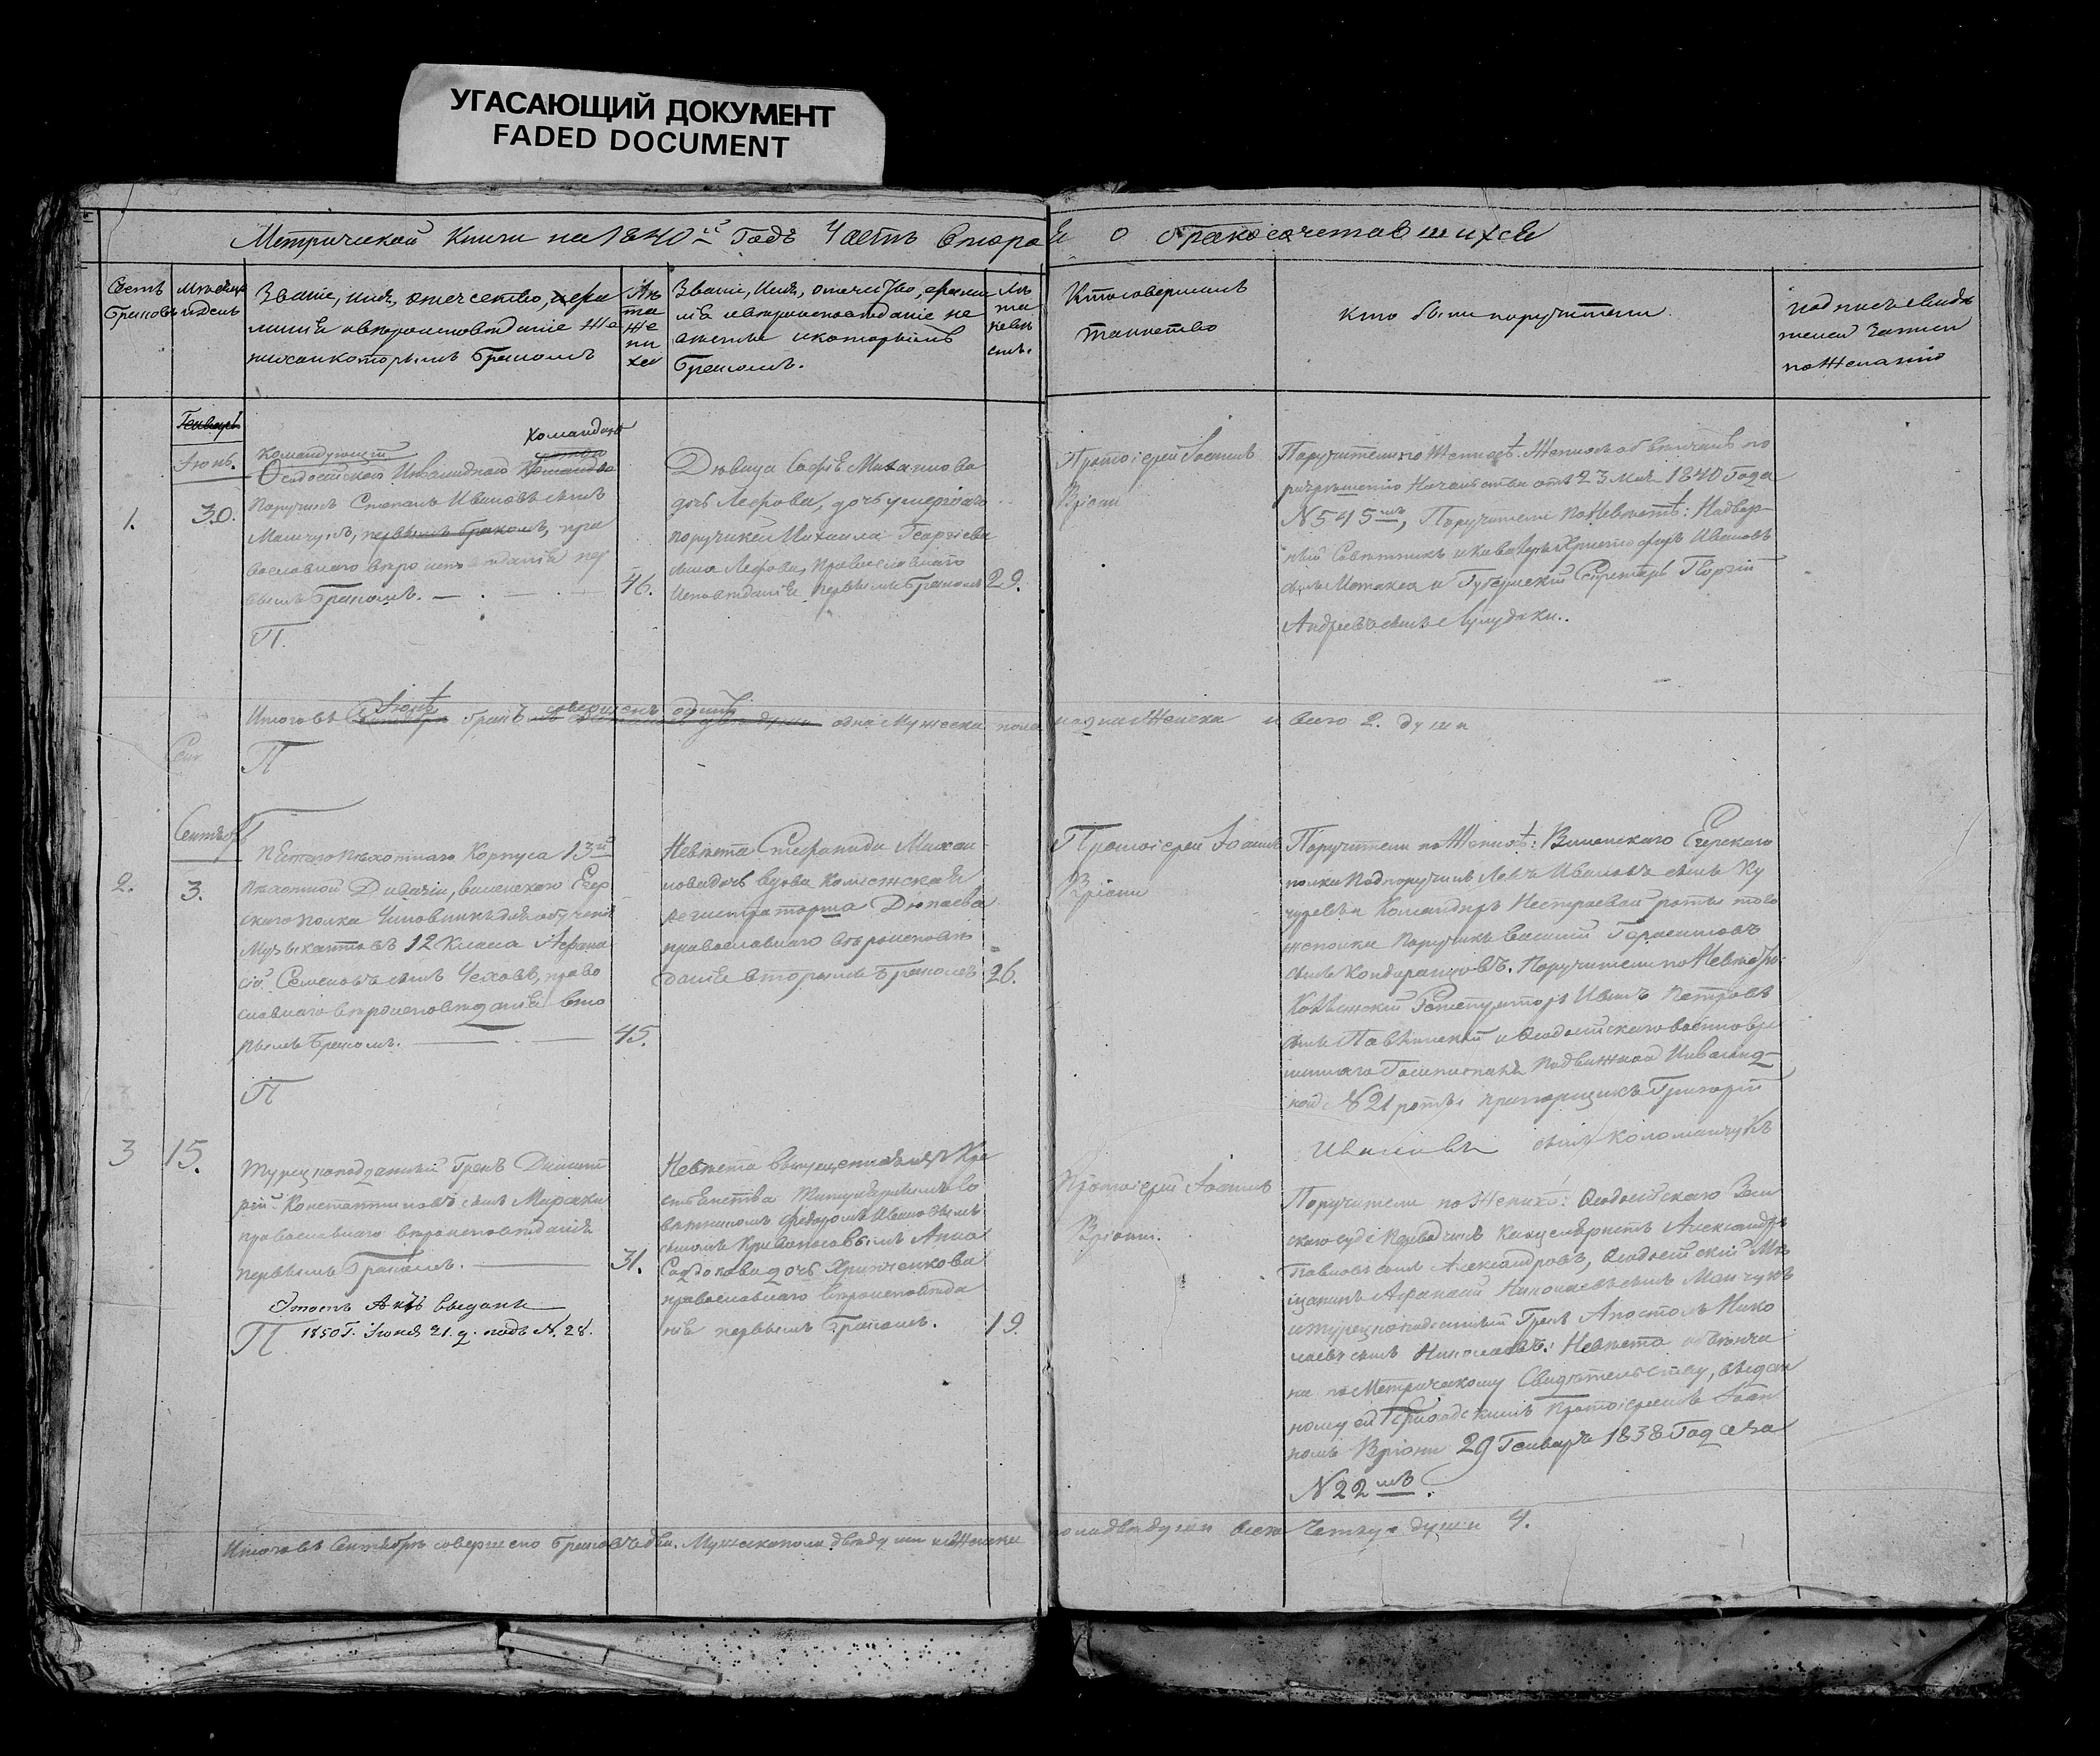 УГАСАЮЩИЙ ДОКУМЕНТ
FADED DOCUMENT
Метрической Книги на 1840й Годъ Часть Вторая о бракосочетавшихся
Счетъ
Браковъ
Мѣсяцъ
и день
Званіе, имя, отечество, фами
лія и вѣроисповѣданіе же
ниха и которымъ бракомъ
Лѣ
та
же
ни
ха
Званіе, имя, отечество, фами
лія и вѣроисповѣданіе не
вѣсты и которымъ
бракомъ.
Лѣ
та
невѣс
ты.
Кто совершалъ
таинство
кто были поручители
подпись свидѣ
телей записи
по желанію
Генварь
Іюнь.
1.
30.
Командующій
Команды
Ѳеодосійской Инвалидной
Поручикъ Степанъ Ивановъ сынъ
первымъ бракомъ, пра
вославнаго вѣроисповѣданія пер
вымъ бракомъ.
46.
П.
Дѣвица Софія Михаилова
дочь Лефова, дочь умершаго
поручика Михаила Георгіева
сына Лефова, православнаго
исповѣданія первымъ бракомъ
29.
Протоіерей Іоаннъ
Вріони
Поручители по женихѣ: Женихъ обвѣнчанъ по
разрѣшенію Начальства отъ 23 Мая 1840 Года
N 545мъ, Поручители по Невѣстѣ: Надвор-
ный Совѣтникъ и кавалеръ Христофоръ Ивановъ
сынъ и Губернскій Секретарь Георгій
Андреевъ сынъ
Итого въ Іюнѣ бракъ совершенъ одинъ одна мужеска пола и одна женска и всего 2. души
Сен
П
Сентябрь
2.
3.
Пятаго пѣхотнаго Корпуса 13й
пѣхотной Дивизіи, виленскаго Егер
скаго полка Чиновникъ для обученія
Музыкантовъ 12 Класа Афана
сій Семеновъ сынъ Чеховъ, право
славнаго вѣроисповѣданія вто
рымъ бракомъ.
45.
П
Невѣста Стефанида Михаи
лова дочь вдова Колежская
регистраторша
православнаго вѣроисповѣ
данія вторымъ бракомъ
26.
Протоіерей Іоаннъ
Вріони
Поручители по Женихѣ: Виленскаго Егерскаго
полка Подпоручикъ Левъ Ивановъ сынъ Ку
Командиръ Нестроевой роты того
же полка Поручикъ Василій Герасимовъ
сынъ Кондрашовъ. Поручители по Невѣстѣ:
Иванъ Петровъ
сынъ и Ѳеодосійскаго военновре
меннаго Госпиталя Подвижной Инвалид-
ной N 21 роты прапорщикъ Григорій
Ивановъ сынъ Коломайчукъ
3
15.
Турецкоподданный Грекъ Димит
рій Константиновъ сынъ Мараки
православнаго вѣроисповѣданія
первымъ бракомъ.
31.
Этотъ Актъ выданъ
1850 Г. Іюня 21. д. подъ N. 28.
П.
Невѣста выпущенная изъ Кре
стьянства Титулярнымъ Со
вѣтникомъ Федоромъ Ивановымъ
сыномъ Кривоносовымъ Анна
дочь
православнаго вѣроисповѣда
нія первымъ бракомъ.
19.
Протоіерей Іоаннъ
Вріони.
Поручители по Женихѣ: Ѳеодосійскаго Зем
скаго суда Канцеляристъ Александръ
Павловъ сынъ Александровъ, Ѳеодосійскій Мѣ
щанинъ Афанасій Николаевъ сынъ
и турецкоподданный Грекъ Апостолъ Нико
лаевъ сынъ Николаевъ: Невѣста обвѣнча
на по Метрическому Свидѣтельству, выдан
ному ей Протоіереемъ Іоан
номъ Вріони 29 Генваря 1838 Года за
N 22мъ.
Итого въ Сентябрѣ совершено браковъ два. Мужска пола двѣ души и женска пола двѣ души всего Четыре души 4.